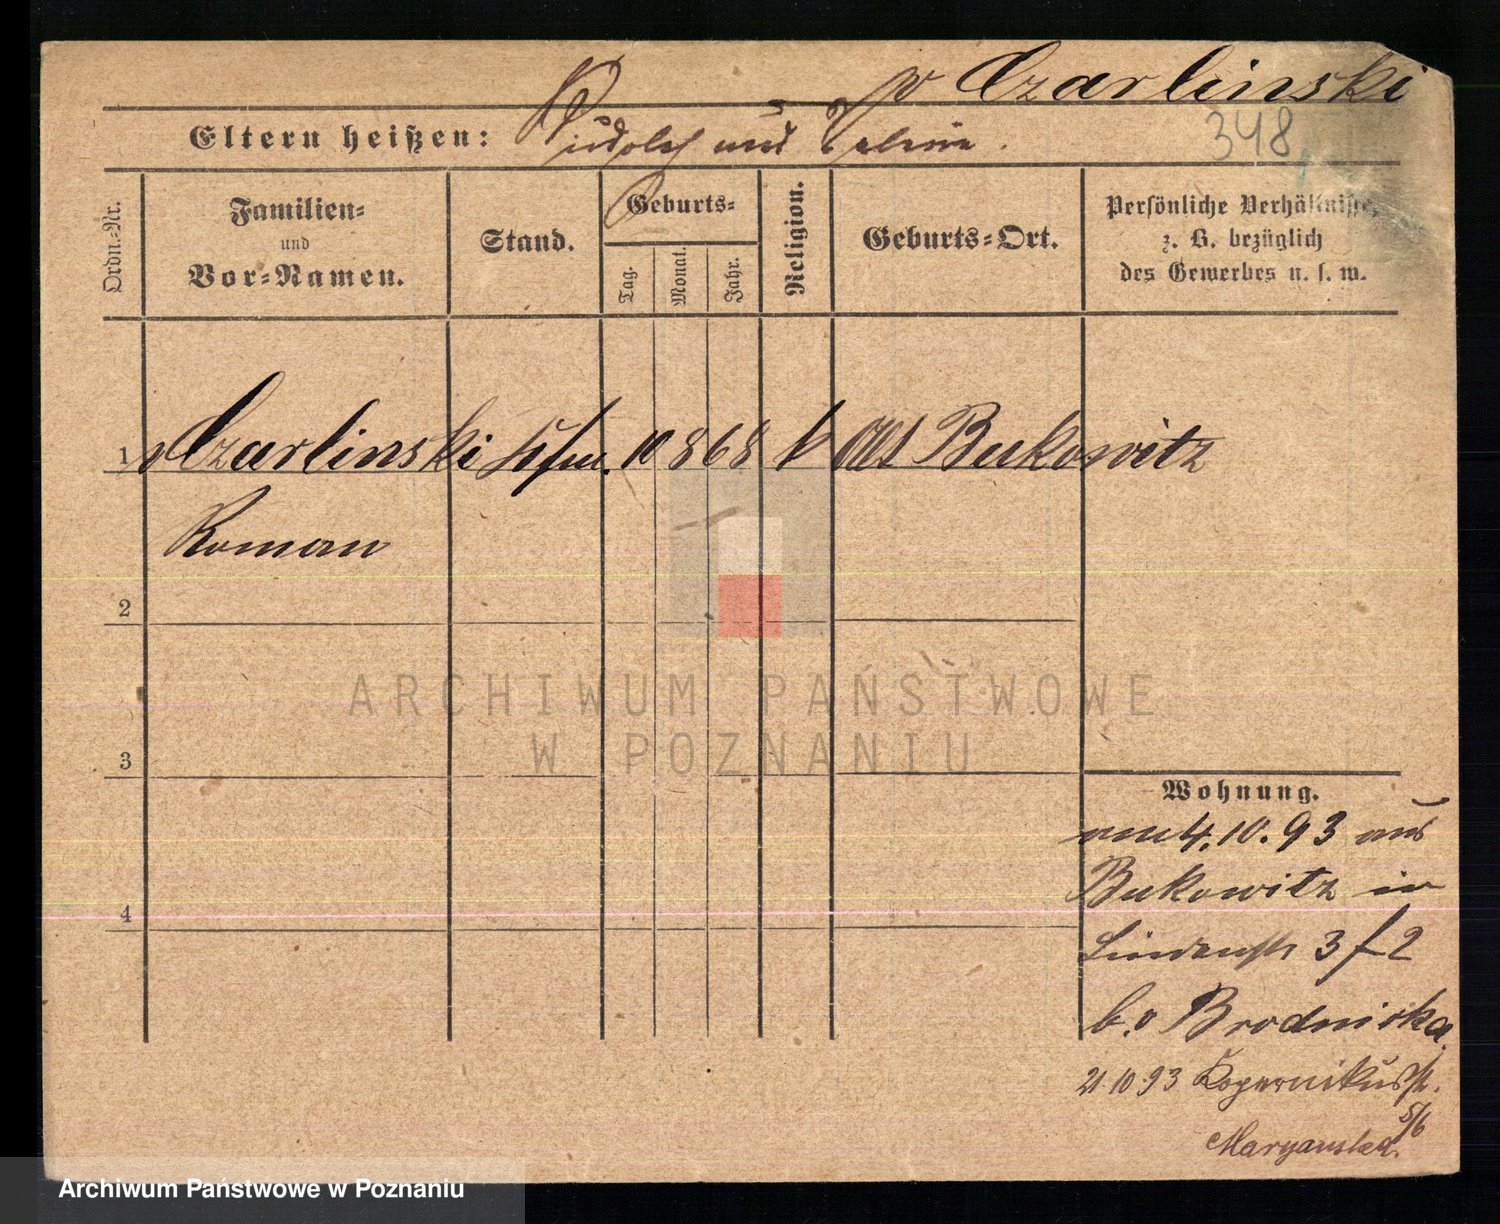 v Czarlinski
Eltern heißen: Rudolf und
348
Ordn.-Nr.
Familien-
und
Vor-Namen.
Stand.
Geburts-
Tag.
Monat.
Jahr.
Religion.
Geburts-Ort.
Persönliche Verhältnisse,
z. B. bezüglich
des Gewerbes u. s. w.
1 v Czarlinski 10 8 68 k Alt Bukowitz
Roman
2
3
4
Wohnung.
am 4.10.93 aus
Bukowitz in
Lindenstr 3
b. v Brodnicka
21.10.93 Kopernikusstr.
5/6
ARCHIWUM PAŃSTWOWE
W POZNANIU
Archiwum Państwowe w Poznaniu